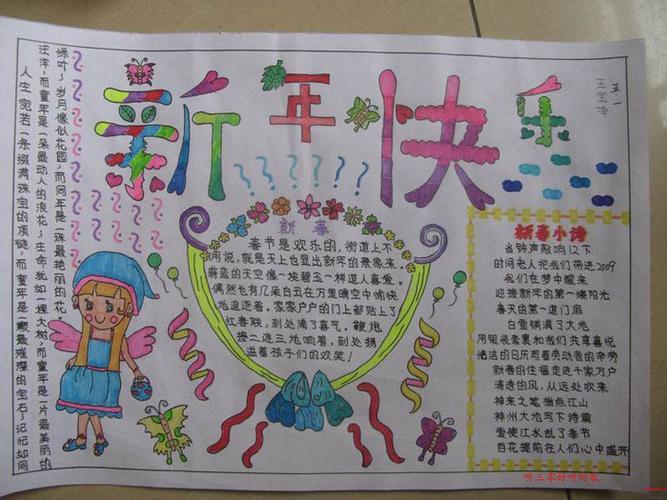 新年快乐
五一
人生宛若一条缀满珠宝的项链，而童年是一颗最璀璨的宝石；记忆如同
汪洋，而童年是一朵最动人的浪花；生命犹如一棵大树，而童年是一片最美丽的
绿叶；岁月像似花园，而同年是一株最艳丽的花。
新春
春节是欢乐的，街道上不
用说，就是天上也显出新年的景象来。
蔚蓝的天空像一块碧玉一样逗人喜爱。
偶然也有几朵白云在万里晴空中愉快
地追逐着。家家户户的门上都贴上了
红春联，到处满了喜气。鞭炮
接二连三地响着，到处扬
溢着孩子们的欢笑！
新春小诗
当钟声敲响12下
时间老人把我们带进2009
我们在梦中醒来
迎接新年的第一缕阳光
春天的第一道门扇
白雪铺满了大地
用银装素裹和我们共享喜悦
皓洁的日历写着劳动者的辛劳
新春的祝福走进千家万户
清逸的风，从远处吹来
神来之笔指点江山
神州大地写下诗篇
爱使江水乱了季节
百花提前在人们心中盛开
听三零好听时歌